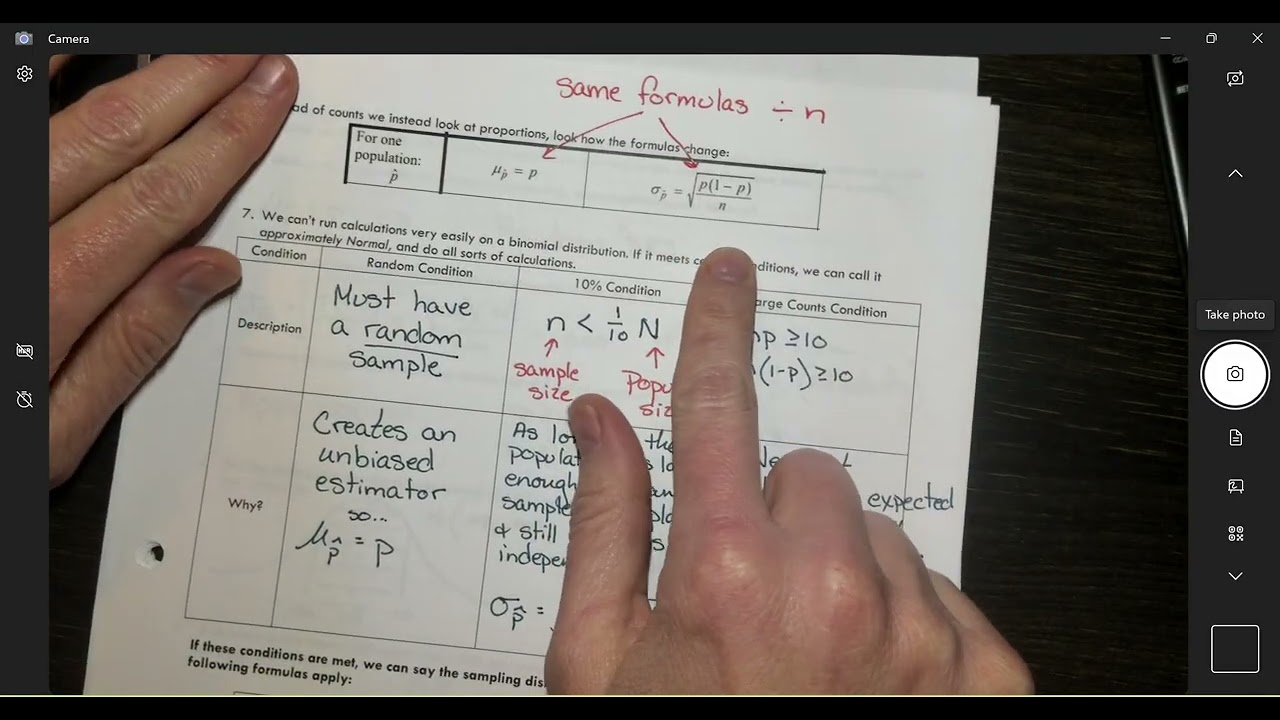 Camera
Take photo
same formulas ÷ n
ad of counts we instead look at proportions, look how the formulas change:
For one
population:
p̂
μp̂ = p
σp̂ = √(p(1 − p)/n)
7. We can't run calculations very easily on a binomial distribution. If it meets conditions, we can call it
approximately Normal, and do all sorts of calculations.
Condition
Random Condition
10% Condition
arge Counts Condition
Description
Must have
a random
sample
n < 1/10 N
sample
size
Popu
siz
np ≥ 10
(1-p) ≥ 10
Why?
Creates an
unbiased
estimator
so...
μp̂ = p
As lo the
populat
enough
sample
& still
indepe
σp̂ =
expected
If these conditions are met, we can say the sampling dis
following formulas apply: